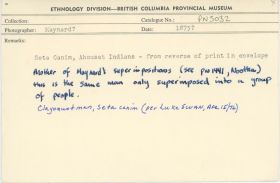 ETHNOLOGY DIVISION—BRITISH COLUMBIA PROVINCIAL MUSEUM
Collection: Catalogue No.: PN5032
Photographer: Maynard? Date: 1873?
Remarks:
Seta Canim, Ahousat Indians - from reverse of print in envelope
Another of Maynard's superimpositions (see PN 1441, Nootka)
this is the same man only superimposed into a group
of people.
Clayoquot man, Seta canim (per Luke SWAN, APR 15/72)